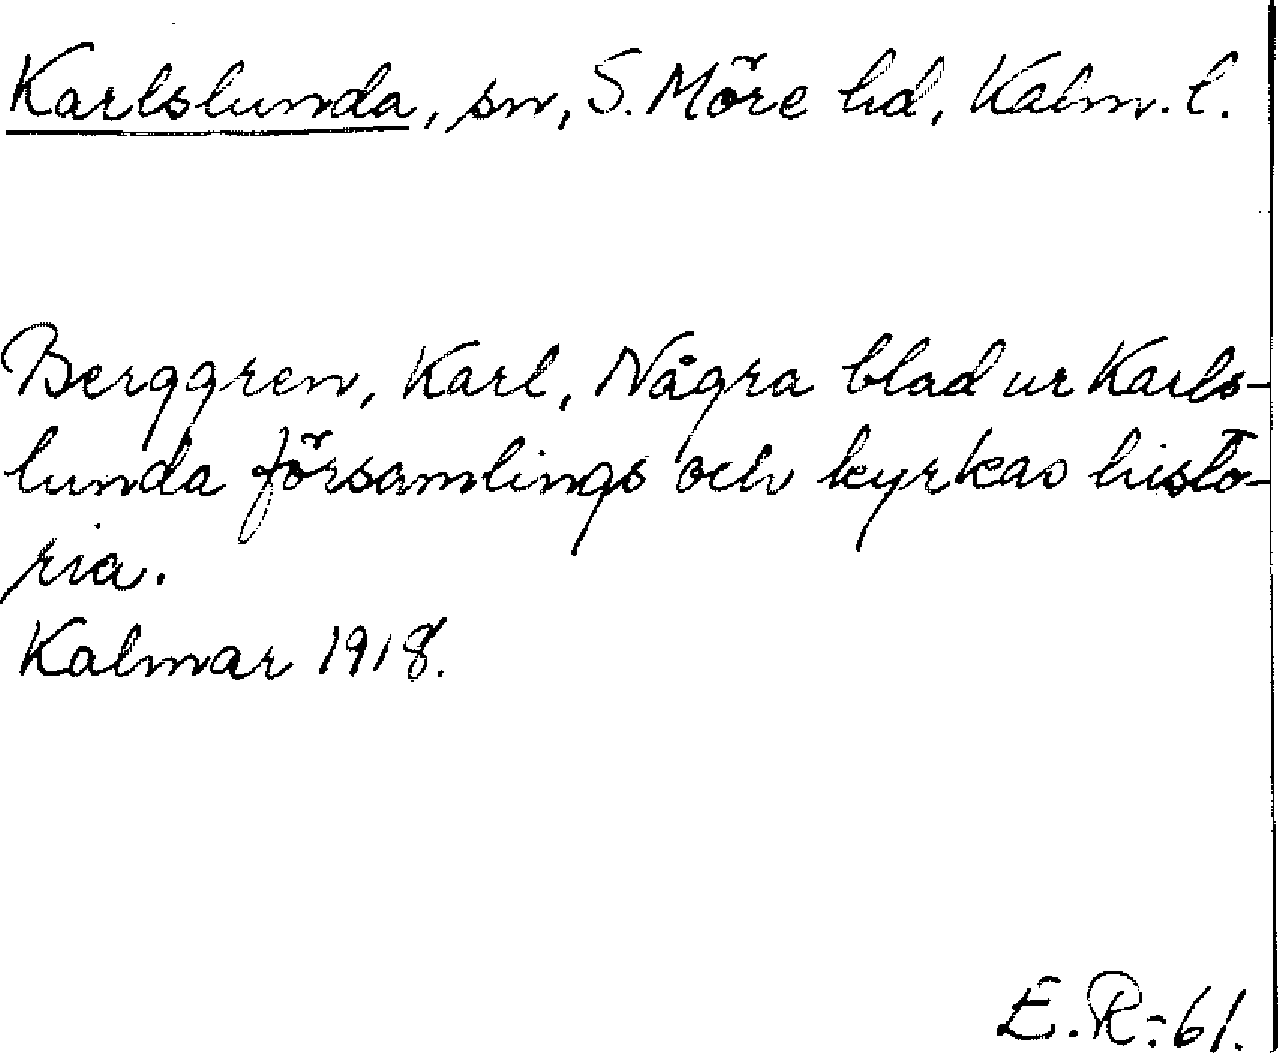 Karlslunda, sn, S. Möre hd, Kalm. l.
Berggren, Karl, Några blad ur Karls-
lunda församlings och kyrkas histo-
ria.
Kalmar 1918.
E.R:-61.